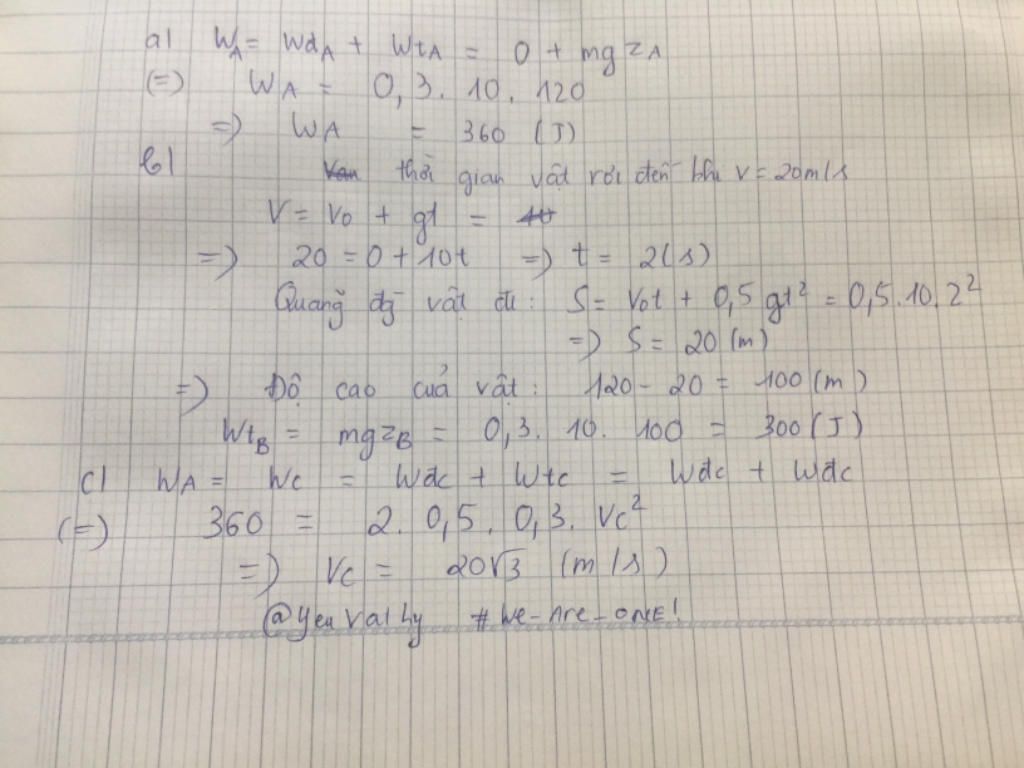 a) WA = WđA + WtA = 0 + mgzA
(=) WA = 0,3 . 10 . 120
=) WA = 360 (J)
b) thời gian vật rơi đến khi v = 20m/s
V = Vo + gt =
=) 20 = 0 + 10t =) t = 2(s)
Quãng đg vật đi : S = Vot + 0,5 gt² = 0,5.10.2²
=) S = 20 (m)
=) Độ cao của vật : 120 - 20 = 100 (m)
WtB = mgzB = 0,3 . 10 . 100 = 300 (J)
c) WA = Wc = Wđc + Wtc = Wđc + Wđc
(=) 360 = 2 . 0,5 . 0,3 . Vc²
=) Vc = 20√3 (m/s)
@Yeu Vat Ly #We-Are-ONE!